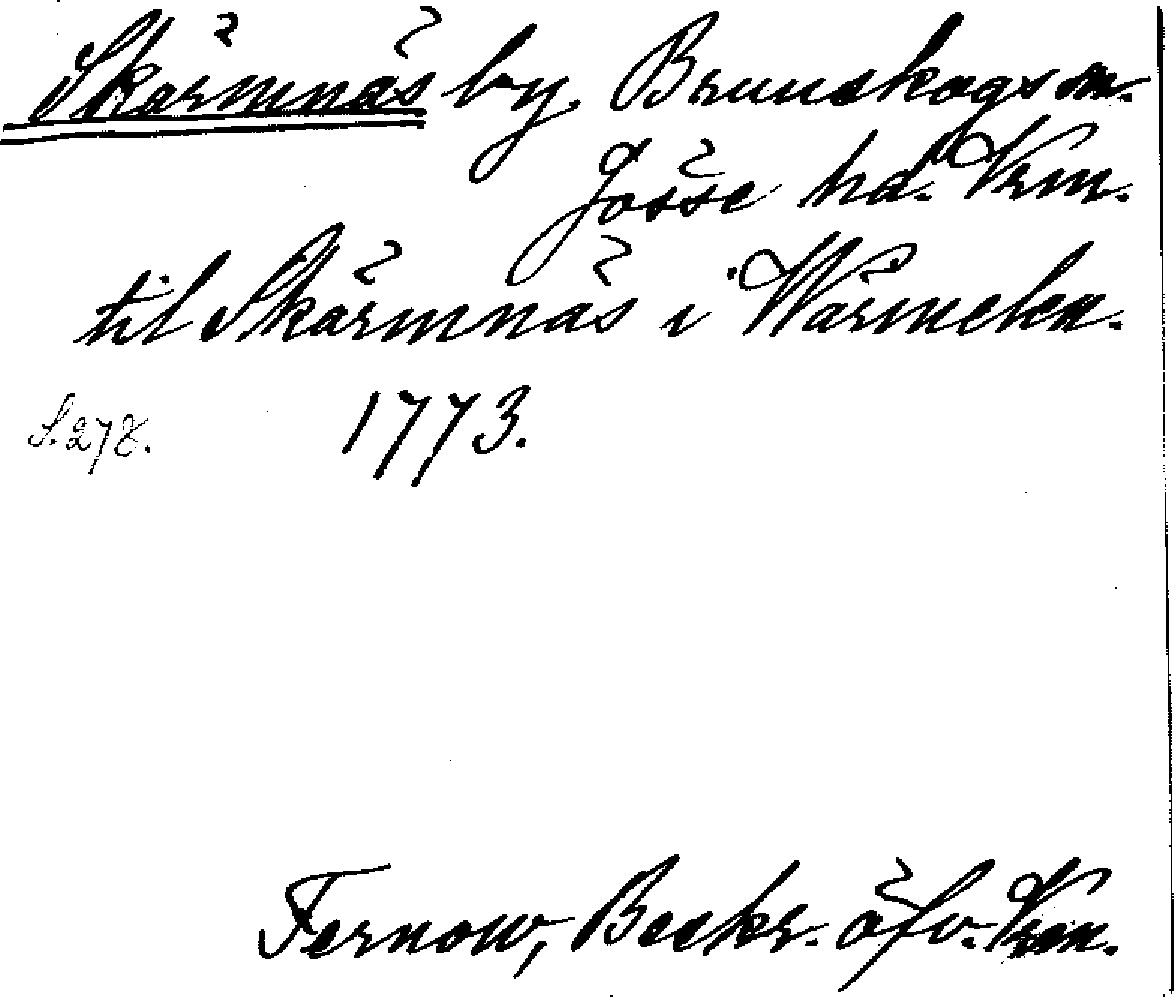 Skärmnäs by Brunskogs sn.
Jösse hd. Vrm.
til Skärmnäs i Wärmeln.
S. 278. 1773.
Fernow, Beskr. öfv. Vrm.